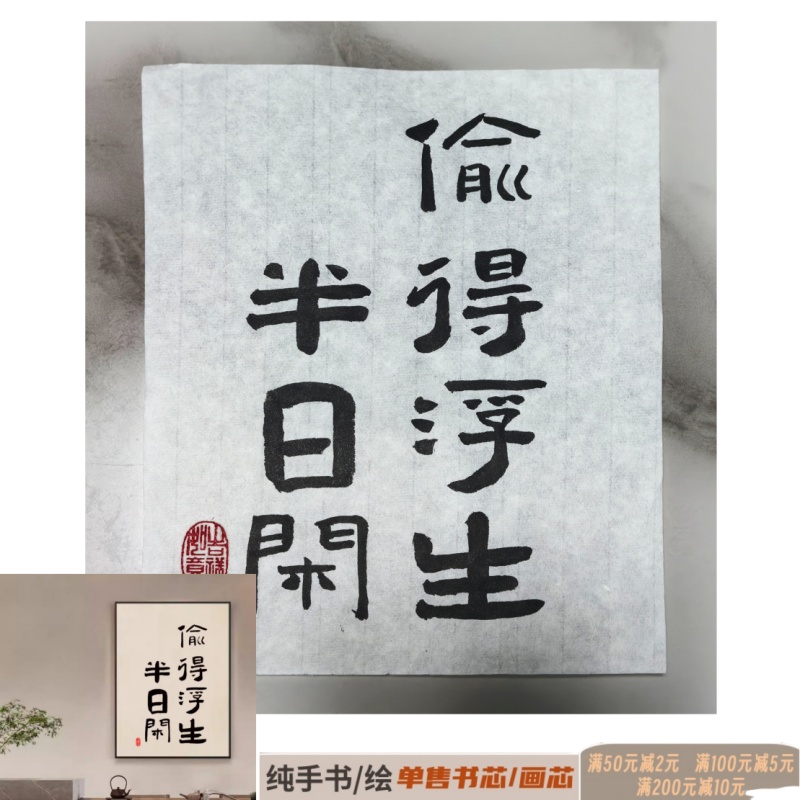 偷得浮生
半日閑
吉祥
妙音
偷得浮生
半日閑
纯手书/绘 单售书芯/画芯
满50元减2元 满100元减5元
满200元减10元